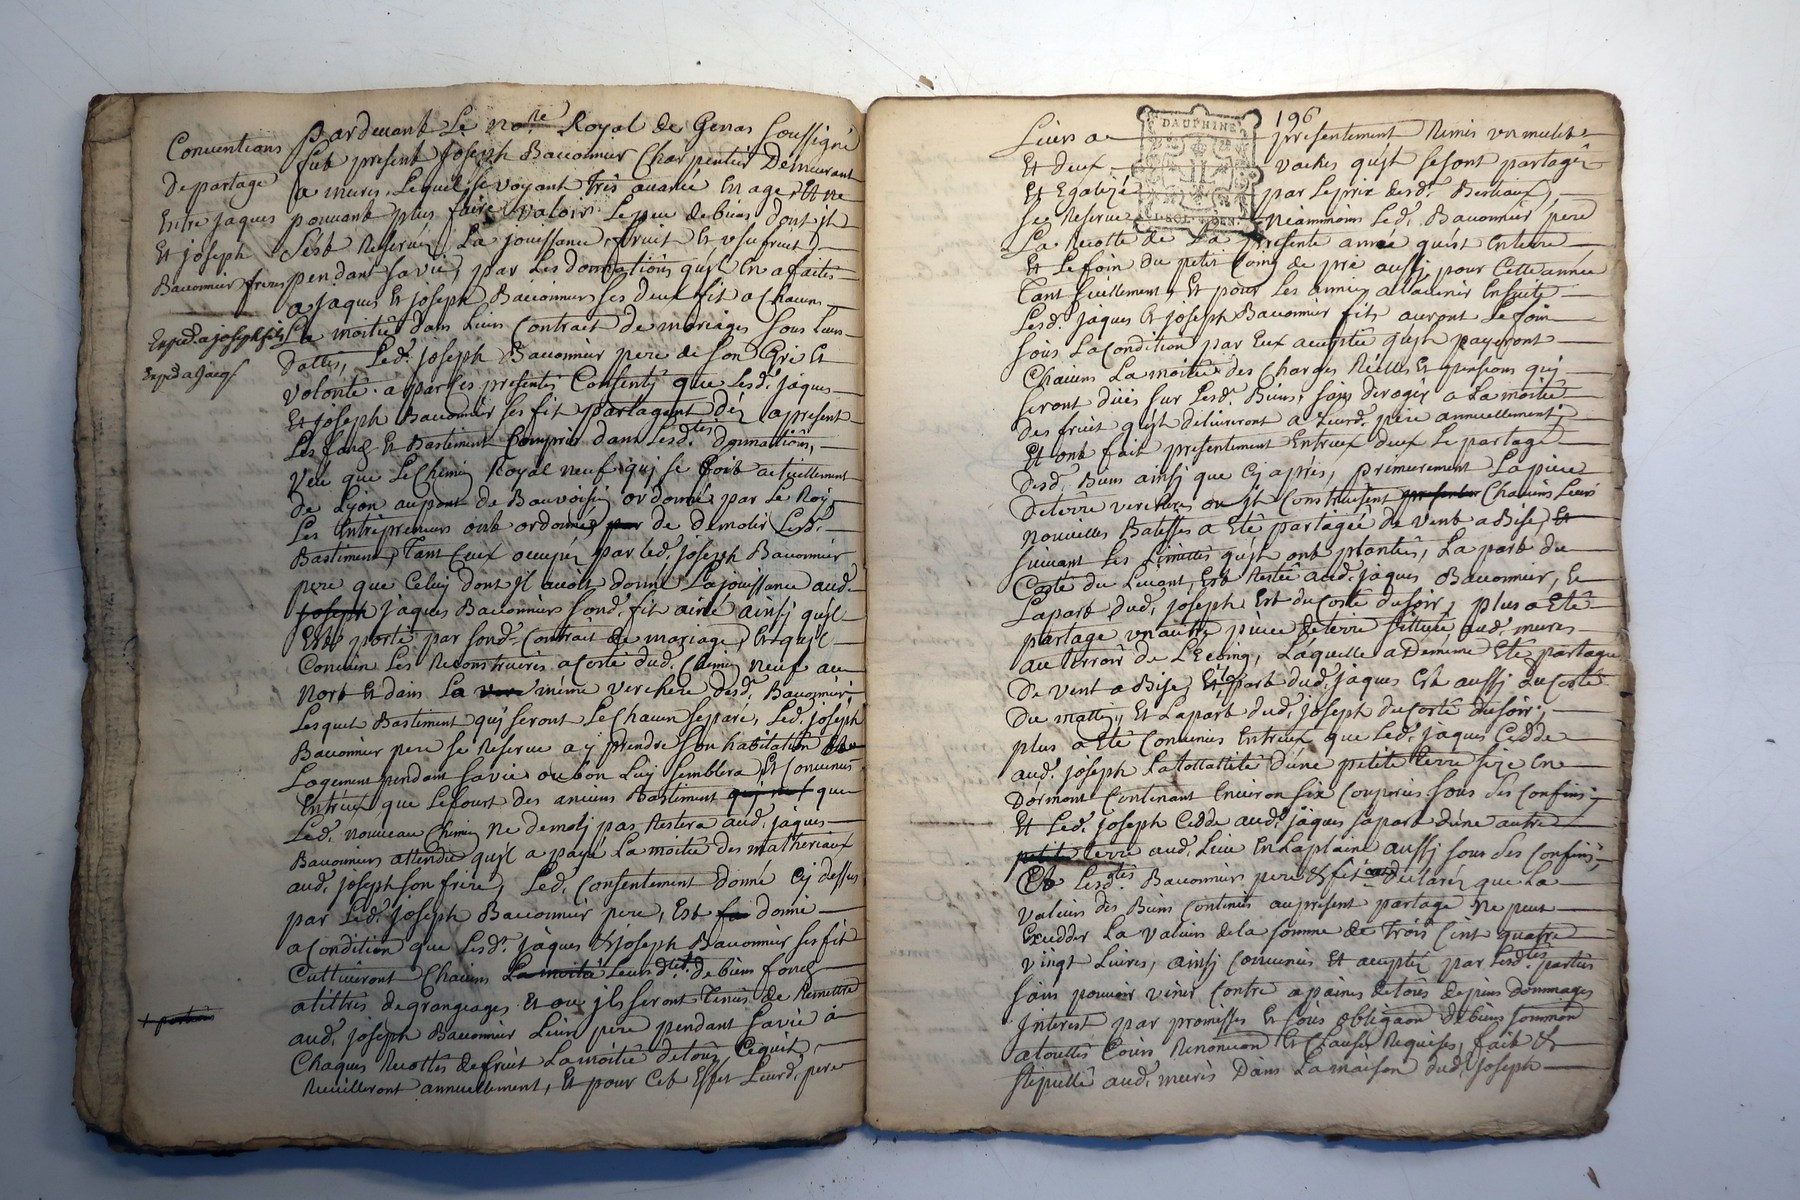 Conventions
de partage
Entre jaques
Et joseph
Bauonnier freres
Exped. a joseph fils
Exped a Jacq
Pardevant Le no.re Royal de Genas Soussigné
fut present Joseph Bauonnier Charpentier Demeurant
a mures, Lequel se voyant Très auancé En age Et ne
pouuant plus faire valoir Le peu de biens dont jl
s'est Reserué La jouissance, fruit Et usufruit
pendant sa vie, par Les donnations qu'jl En a faites
a jaques Et joseph Bauonnier ses deux fils a Chacun
La moitié dans Leurs Contrait de mariages sous Leurs
dattes, Led. joseph Bauonnier pere de son Gré Et
volonté a par Ces presentes Consenty que Lesd. jaques
Et joseph Bauonnier ses fit partagent dez apresent
Les fond Et Bastiment Compris dans Lesd.tes donnations,
Veu que Le Chemin Royal neuf quj se foit actuellement
de Lyon au pont de Bauvoisin ordonné par Le Roy
Les Entrepreneurs ont ordonné par de demolir Lesd.
Bastiment, Tant Ceux occupéz par led. joseph Bauonnier
pere que Celuy dont jl auoit donné La jouissance aud.
joseph jaques Bauonnier sond. fit ainé ainsj qu'jl
Est porté par sond. Contrait de mariage, Et qu'jl
Convien Les Reconstruires a Costé dud. Chemin neuf au
Nort Et dans La mème verchere desd. Bauonnier
Lesquet Bastiment quj seront Le Chacun separé, Led. joseph
Bauonnier pere se Reserue a y prendre son habitation
Logement pendant sa vie ou bon Luy semblera Et Conuenus
Entreux que Lefourt des anciens Bastiment que
Led. nouueau Chemin ne demolj pas Restera aud. jaques
Bauonniers attendu qu'jl a payé La moitié des matheriaux
aud. joseph son frere, Led. Consentement donné Cy dessus
par Led. joseph Bauonnier pere, Est donné
a Condition que Lesd. jaques & joseph Bauonnier ses fit
Cultiueront Chacuns La moitié Leursd. de biens fond
a tiltres de grangeages Et ou jls seront Tenus de Remettre
aud. joseph Bauonnier Leur pere pendant sa vie a
Chaques Recottes de fruit La moitié de tous Cequit
Recuilleront annuellement, Et pour Cet Effet Leurd. pere
196
DAUPHINE
Leurs a presentement Remis vn mulet
Et deux vaches qu'jt se sont partagér
Et Egalizé par Le prix desd. Bestiaux,
se Reserue Néammoins Led. Bauonnier pere
La Recotte de La presente année quj Est En terre
Et Le foin du petit Coing de pré aussj pour Cette année
Tant seullement, Et pour Les années a Lauenir Ensuite
Lesd. jaques Et joseph Bauonnier fits auront Le foin
sous La Condition par Eux acceptée qu'jt payeront
Chacuns La moitié des Charges Réelles Et pensions quj
seront dües sur Lesd. Biens, sans deroger a La moitié
des fruit qu'jt deliureront a Leurd. pere annuellement;
Et ont fait presentement Entreux deux Le partage
desd. Biens ainsj que Cy apres, primeurement La piece
de terre verchere ou jt Construisent Chacuns Leurs
nouuelles Batisses a Eté partagée de Vent a Bise,
suiuant Les Limittes qu'jt ont plantées, La part du
Costé du Leuant, Est Restée aud. jaques Bauonnier, Et
La part dud. joseph Est du Costé du soir, plus a Eté
partagé vn autre piece de terre scittuée aud. mures
au terroir de L'Ecoing, Laquelle a De meme Eté partagé
De vent a Bise, Et La part dud. jaques Est aussj du Costé
Du mattin, Et Lapart dud. joseph du Costé du soir;
plus a Eté Conuenus Entreux que Led. jaques Cedde
aud. joseph La tottalité d'une petite terre size En
Dormont Contenant Enuiron six Couperées sous ses Confins;
Et Led. joseph Cedde aud. jaques sa part d'une autre
petite terre aud. Lieu En La plaine aussj sous ses Confins,
Et Lesd.tes Bauonniers pere & fit declaréz que La
valeurs des Biens Contenus au present partage ne peut
Exedder La valeurs de la somme de Trois Cent quatre
vingt Liures, ainsj Conuenus Et acceptéz par Lesd.tes parties
sans pouuoir venir Contre a paines de tous depens dommages
Jnterest par promesses Et sous obligaon de biens sommon
a touttes Cours Renoncion Et Clauses Requises, fait &
stipullé aud. mures Dans La maison dud. joseph